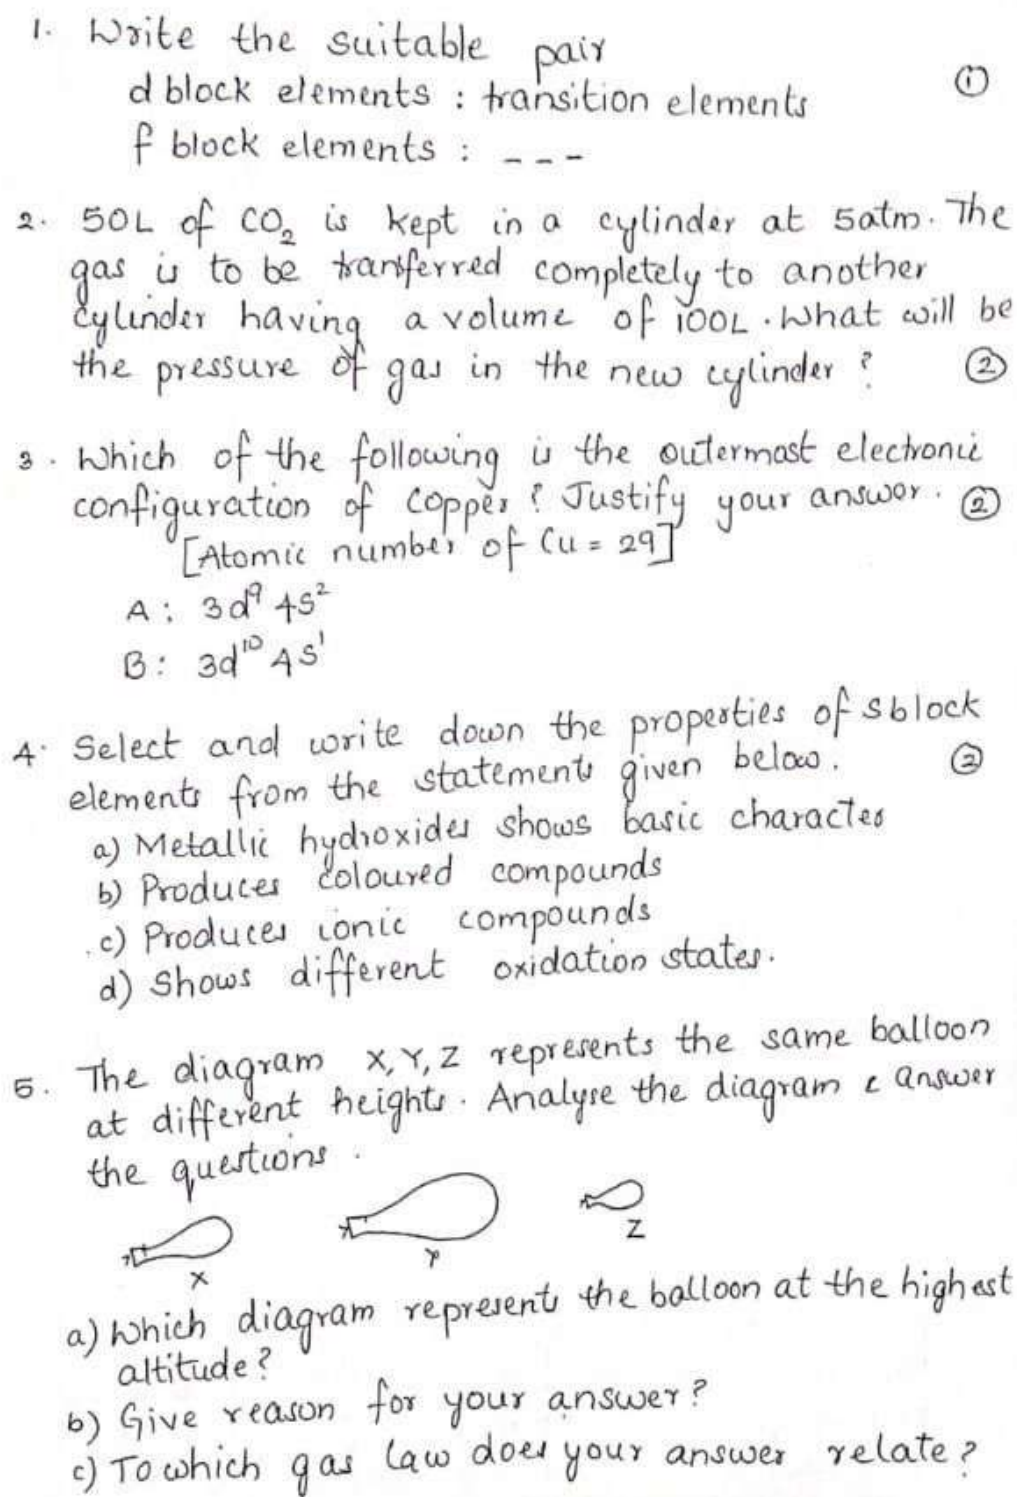 1. Write the suitable pair
d block elements : transition elements ①
f block elements : ---
2. 50L of CO₂ is kept in a cylinder at 5atm. The
gas is to be transferred completely to another
cylinder having a volume of 100L. What will be
the pressure of gas in the new cylinder ? ②
3. Which of the following is the outermost electronic
configuration of copper ? Justify your answer. ②
[Atomic number of Cu = 29]
A : 3d⁹ 4s²
B : 3d¹⁰ 4s¹
4. Select and write down the properties of s block
elements from the statements given below. ②
a) Metallic hydroxides shows basic character
b) Produces coloured compounds
c) Produces ionic compounds
d) Shows different oxidation states.
5. The diagram X, Y, Z represents the same balloon
at different heights. Analyse the diagram & answer
the questions.
X Y Z
a) Which diagram represents the balloon at the highest
altitude?
b) Give reason for your answer?
c) To which gas law does your answer relate?